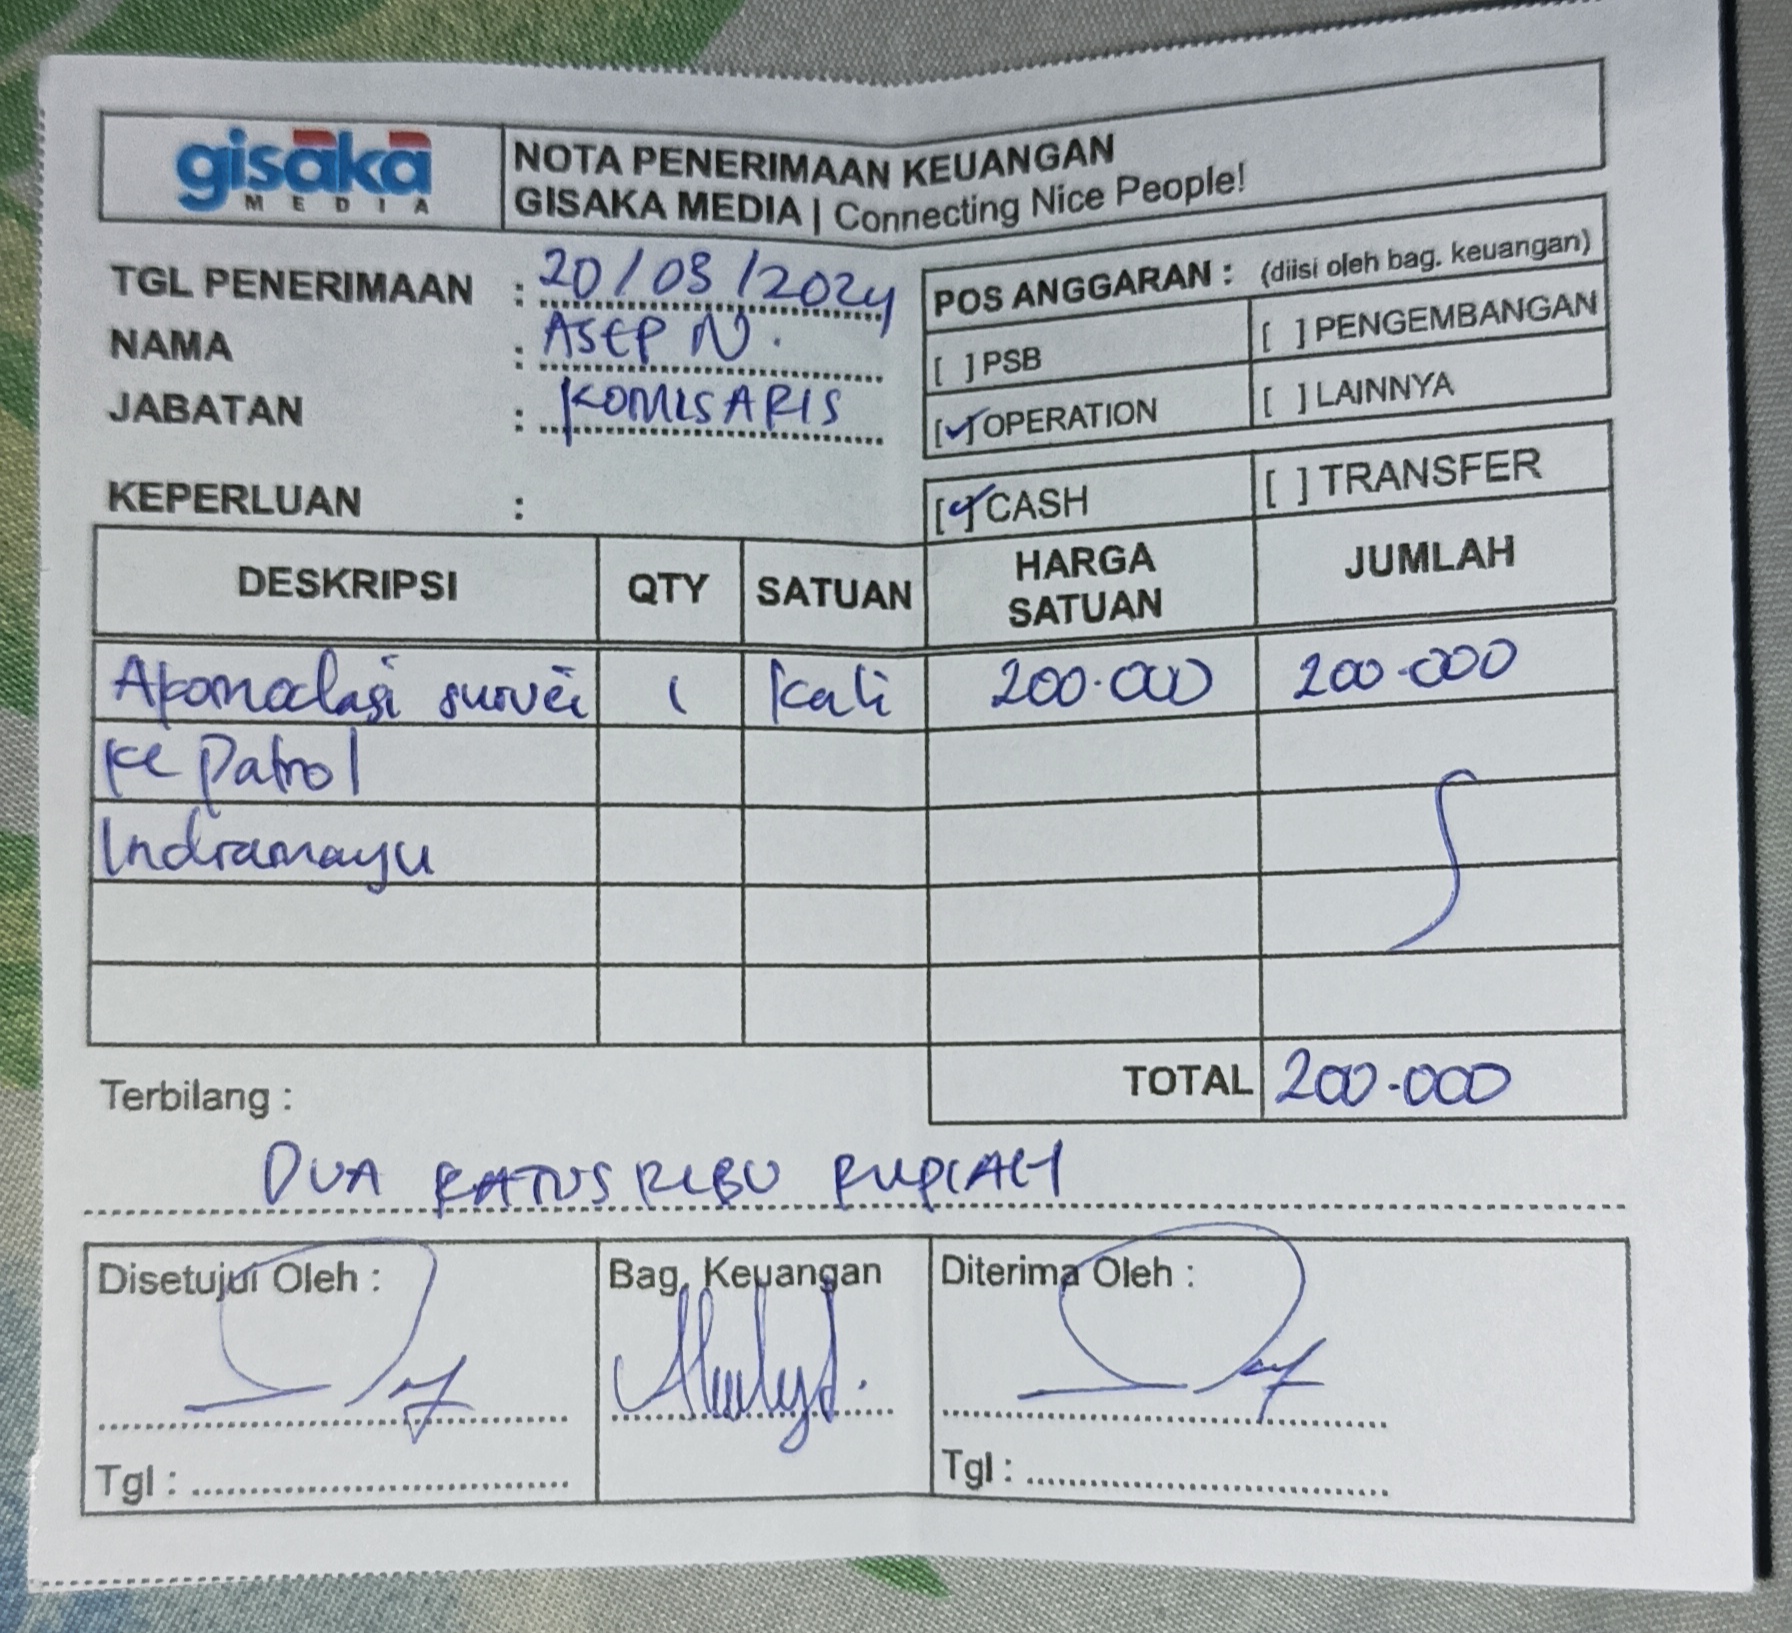 gisaka
MEDIA
NOTA PENERIMAAN KEUANGAN
GISAKA MEDIA | Connecting Nice People!
TGL PENERIMAAN : 20/03/2024
NAMA : ASEP N.
JABATAN : KOMISARIS
POS ANGGARAN : (diisi oleh bag. keuangan)
[ ] PSB [ ] PENGEMBANGAN
[✓] OPERATION [ ] LAINNYA
KEPERLUAN :
[✓] CASH [ ] TRANSFER
DESKRIPSI QTY SATUAN HARGA SATUAN JUMLAH
Akomodasi survei 1 kali 200.000 200.000
ke Patrol
Indramayu
TOTAL 200.000
Terbilang :
DUA RATUS RIBU RUPIAH
Disetujui Oleh : Bag. Keuangan Diterima Oleh :
Tgl : Tgl :